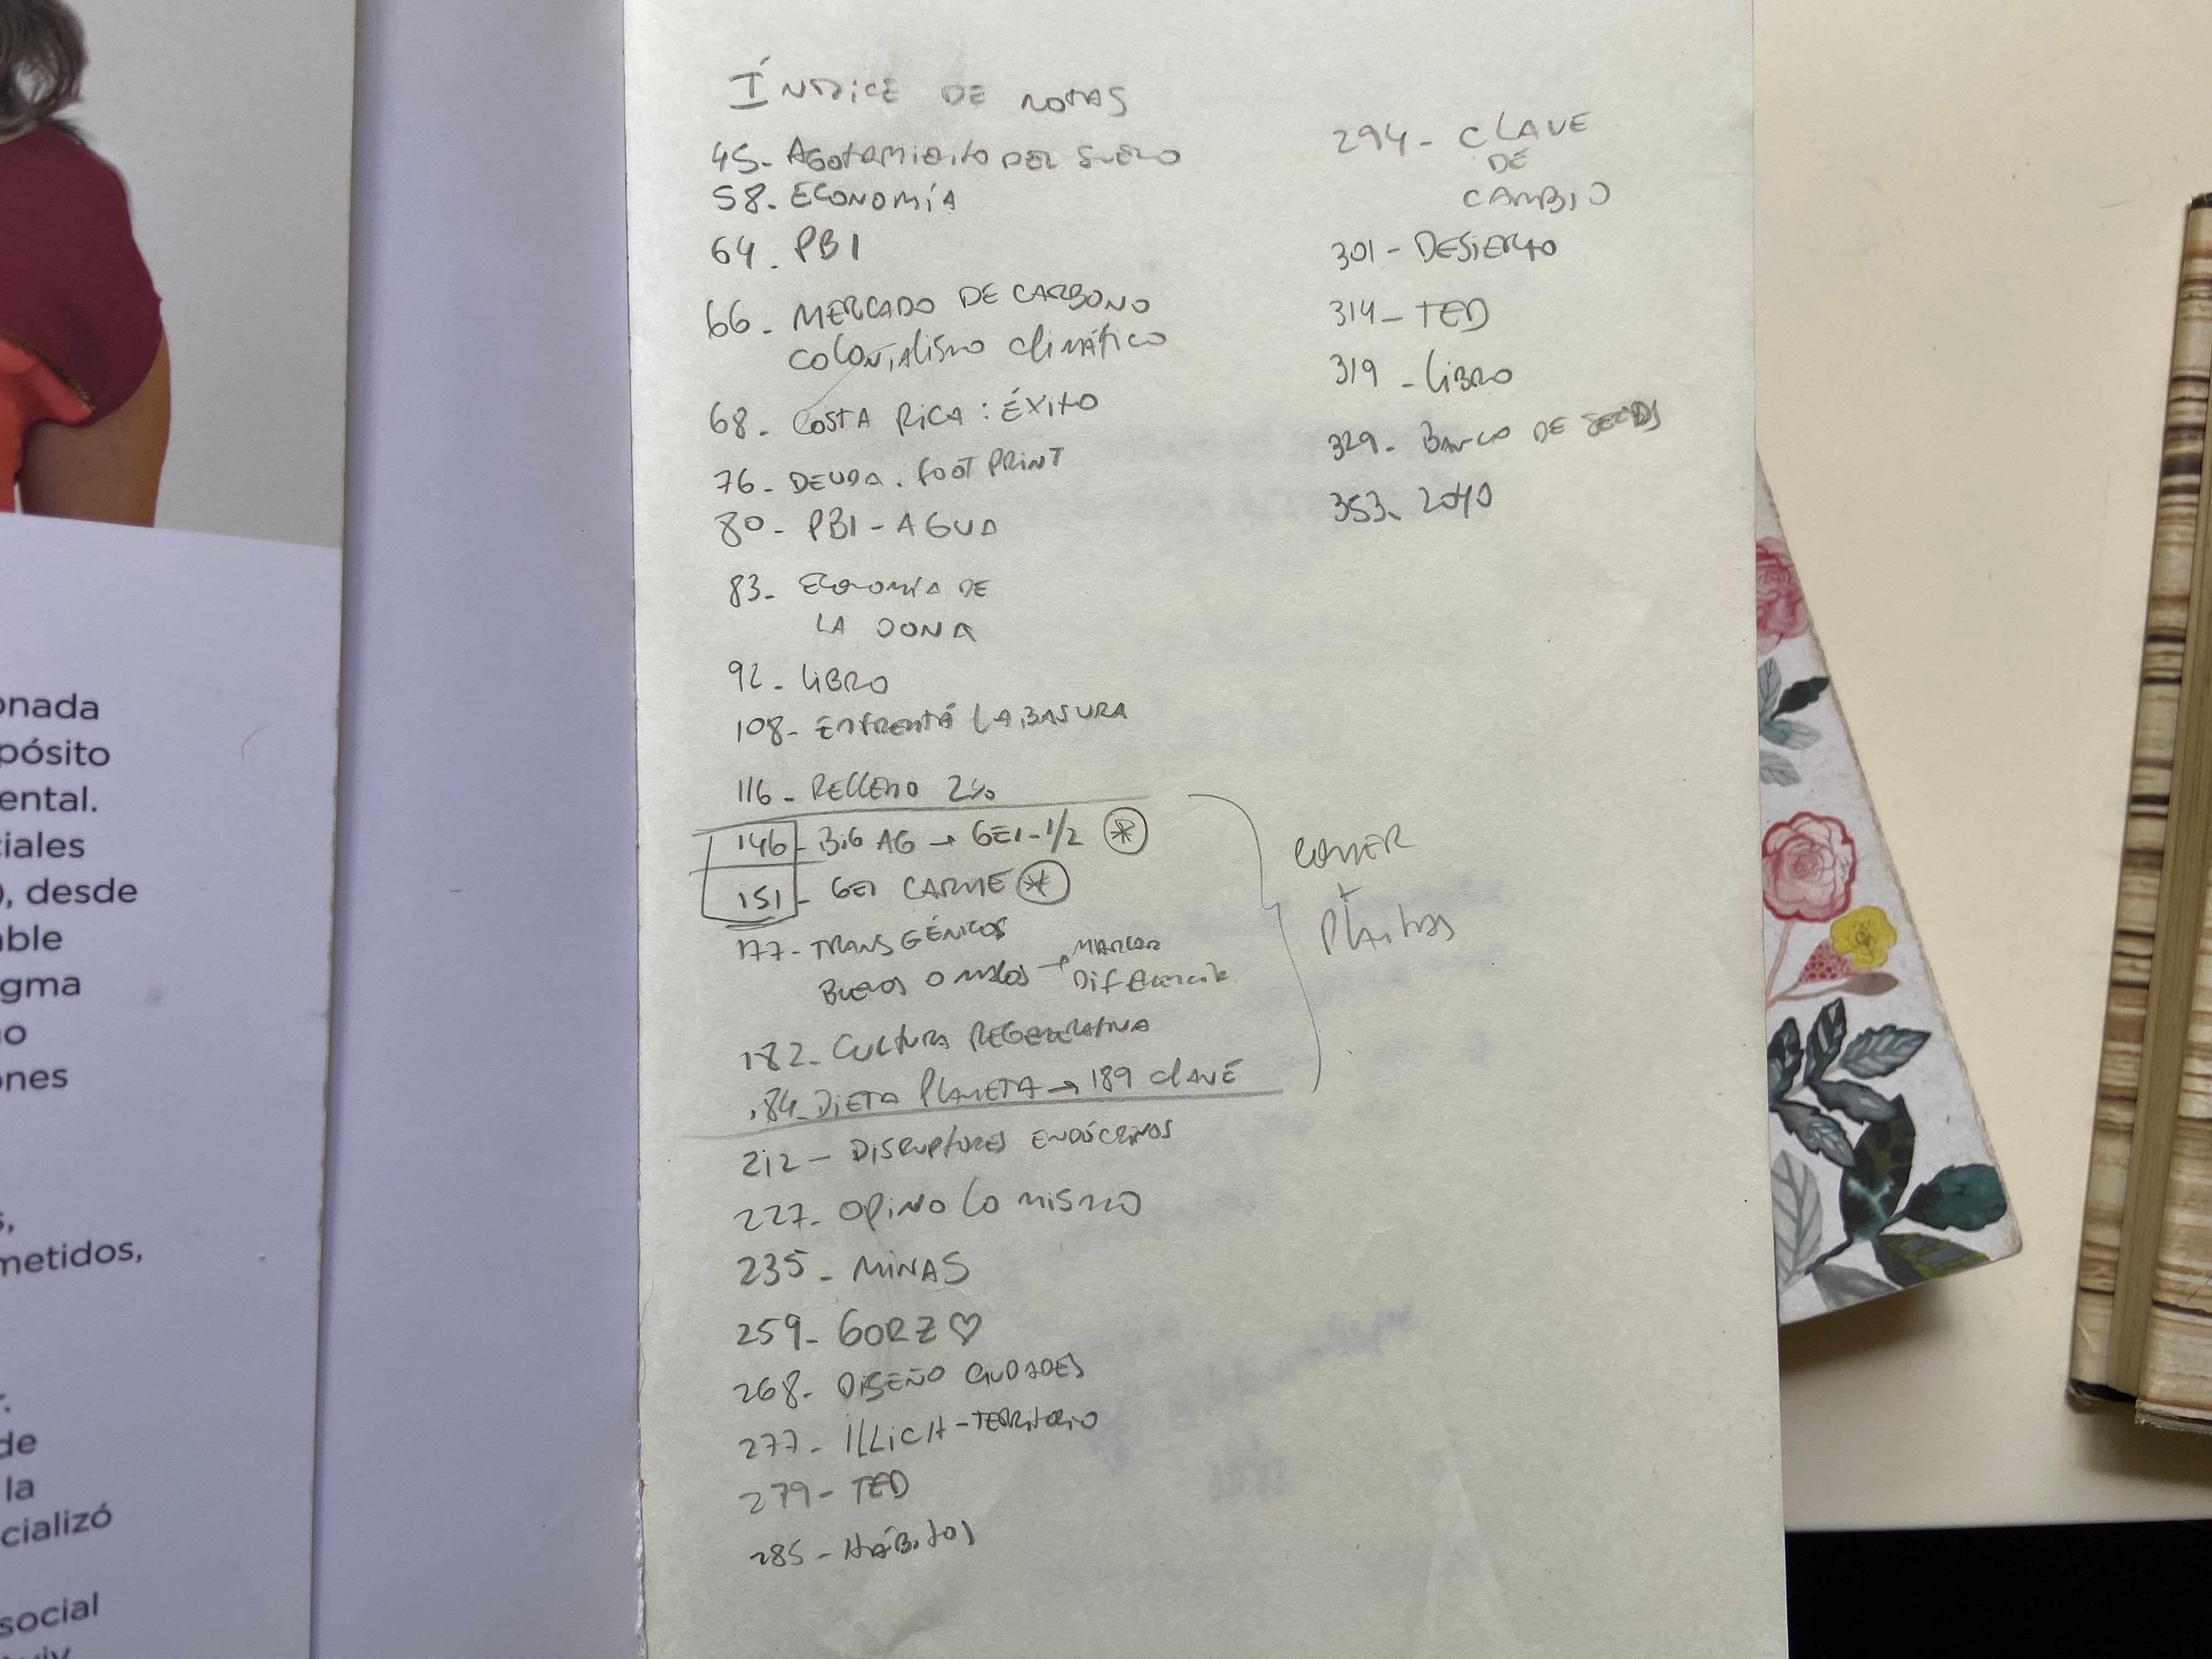 onada
pósito
ental.
ciales
), desde
able
gma
o
ones
s,
metidos,
r.
de
la
cializó
social
ÍNDICE DE NOTAS
45- AGOTAMIENTO DEL SUELO
58. ECONOMÍA
64. PBI
66- MERCADO DE CARBONO
COLONIALISMO CLIMÁTICO
68- COSTA RICA: ÉXITO
76- DEUDA. FOOTPRINT
80- PBI-AGUA
83- ECONOMÍA DE
LA DONA
92- LIBRO
108- ENFRENTÁ LA BASURA
116- RELLENO 2%
146- BIG AG → GEI-1/2 *
151- GEI CARNE *
177- TRANSGÉNICOS
BUENOS O MALOS → MARCAR
DIFERENCIA
182- CULTURA REGENERATIVA
184- DIETA PLANETA → 189 CLAVE
COMER
+
PLANTAS
212- DISRUPTORES ENDÓCRINOS
227- OPINO LO MISMO
235- MINAS
259- GORZ ♡
268- DISEÑO CIUDADES
277- ILLICH-TERRITORIO
279- TED
285- HÁBITOS
294- CLAVE
DE
CAMBIO
301- DESIERTO
314- TED
319- LIBRO
329- BANCO DE
353- 2040